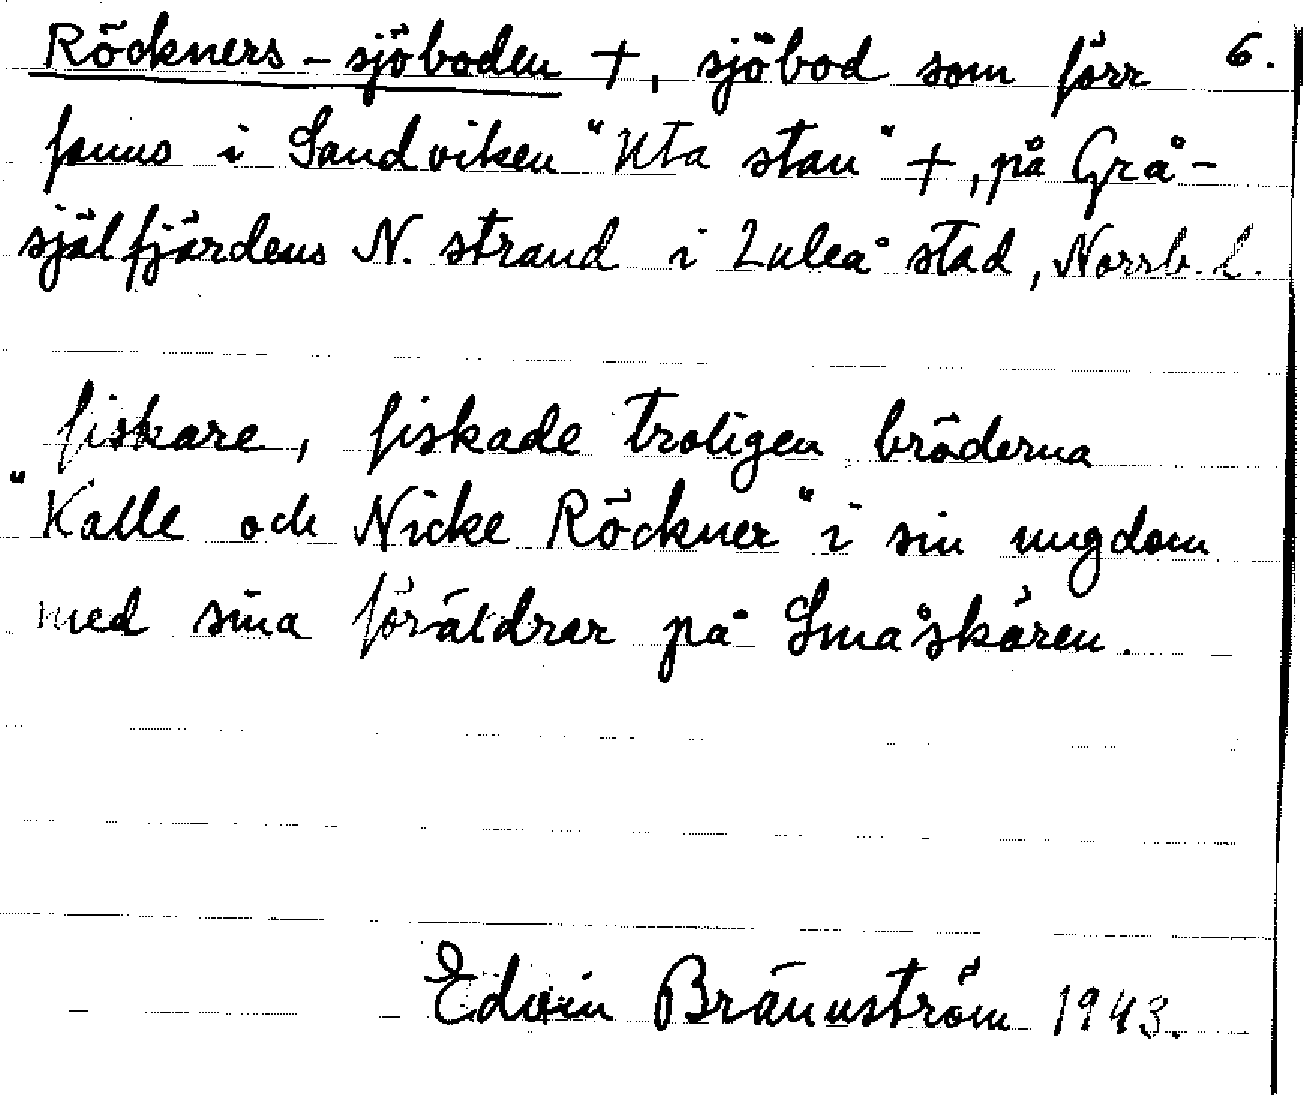 Röckners-sjöboden +, sjöbod som förr 6.
fanns i Sandviken "Uta stan" +, på Grå-
själfjärdens N. strand i Luleå stad, Norrb. l.
fiskare, fiskade troligen bröderna
"Kalle och Nicke Röckner" i sin ungdom
med sina föräldrar på Småskären.
Edvin Brännström 1943.